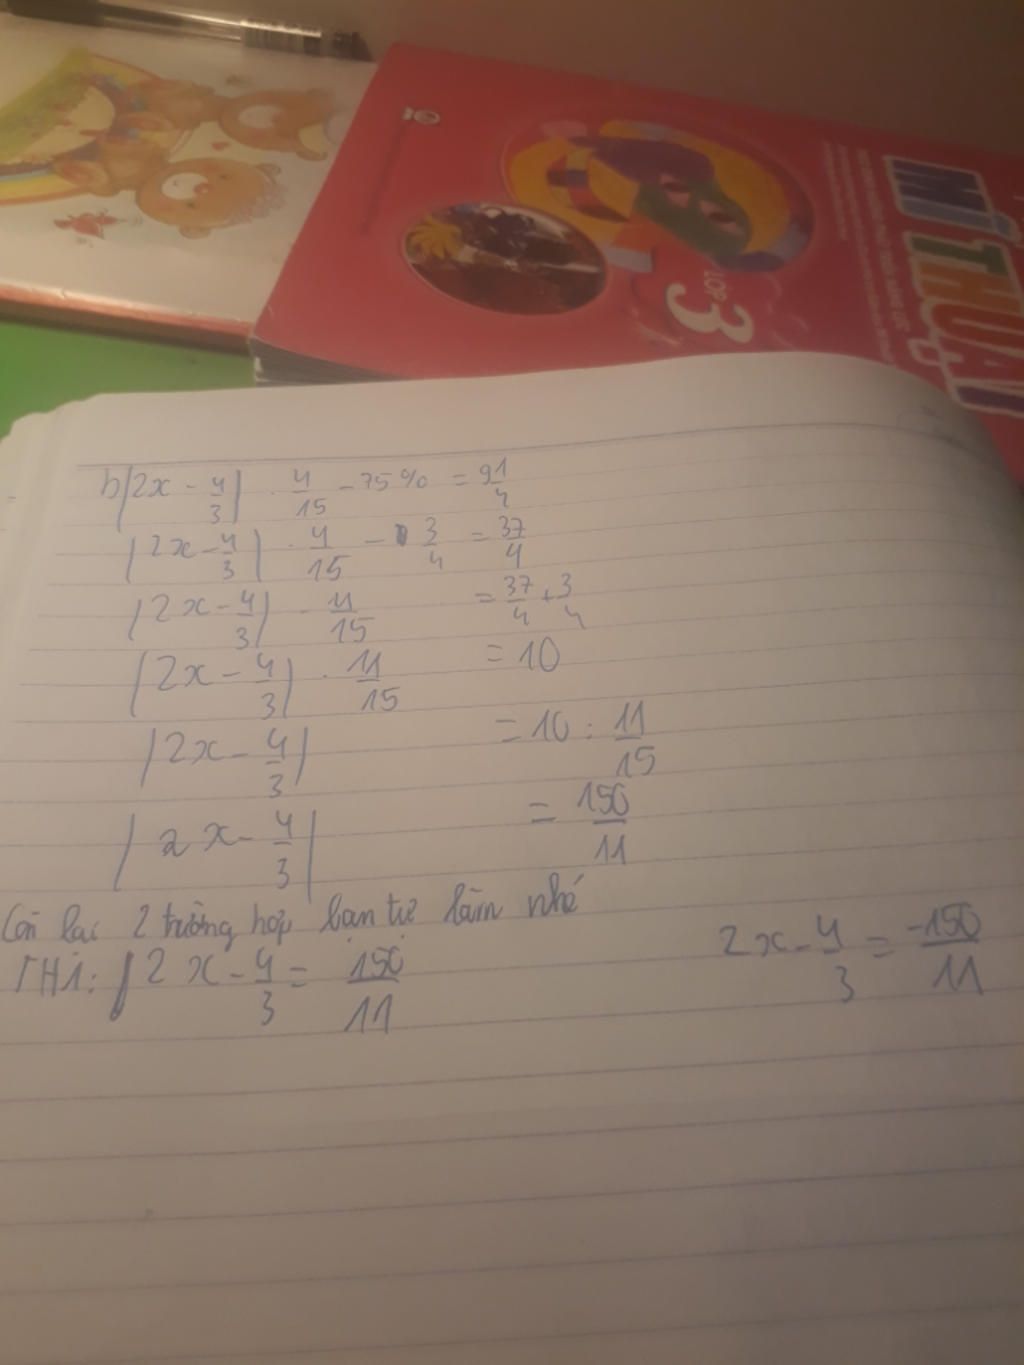 MĨ THUẬT
LỚP 3
b) |2x - 4/3| . 4/15 - 75% = 9 1/4
|2x - 4/3| . 4/15 - 3/4 = 37/4
|2x - 4/3| . 11/15 = 37/4 + 3/4
|2x - 4/3| . 11/15 = 10
|2x - 4/3| = 10 : 11/15
|2x - 4/3| = 150/11
Còn lại 2 trường hợp bạn tự làm nhé
TH1: 2x - 4/3 = 150/11 2x - 4/3 = -150/11